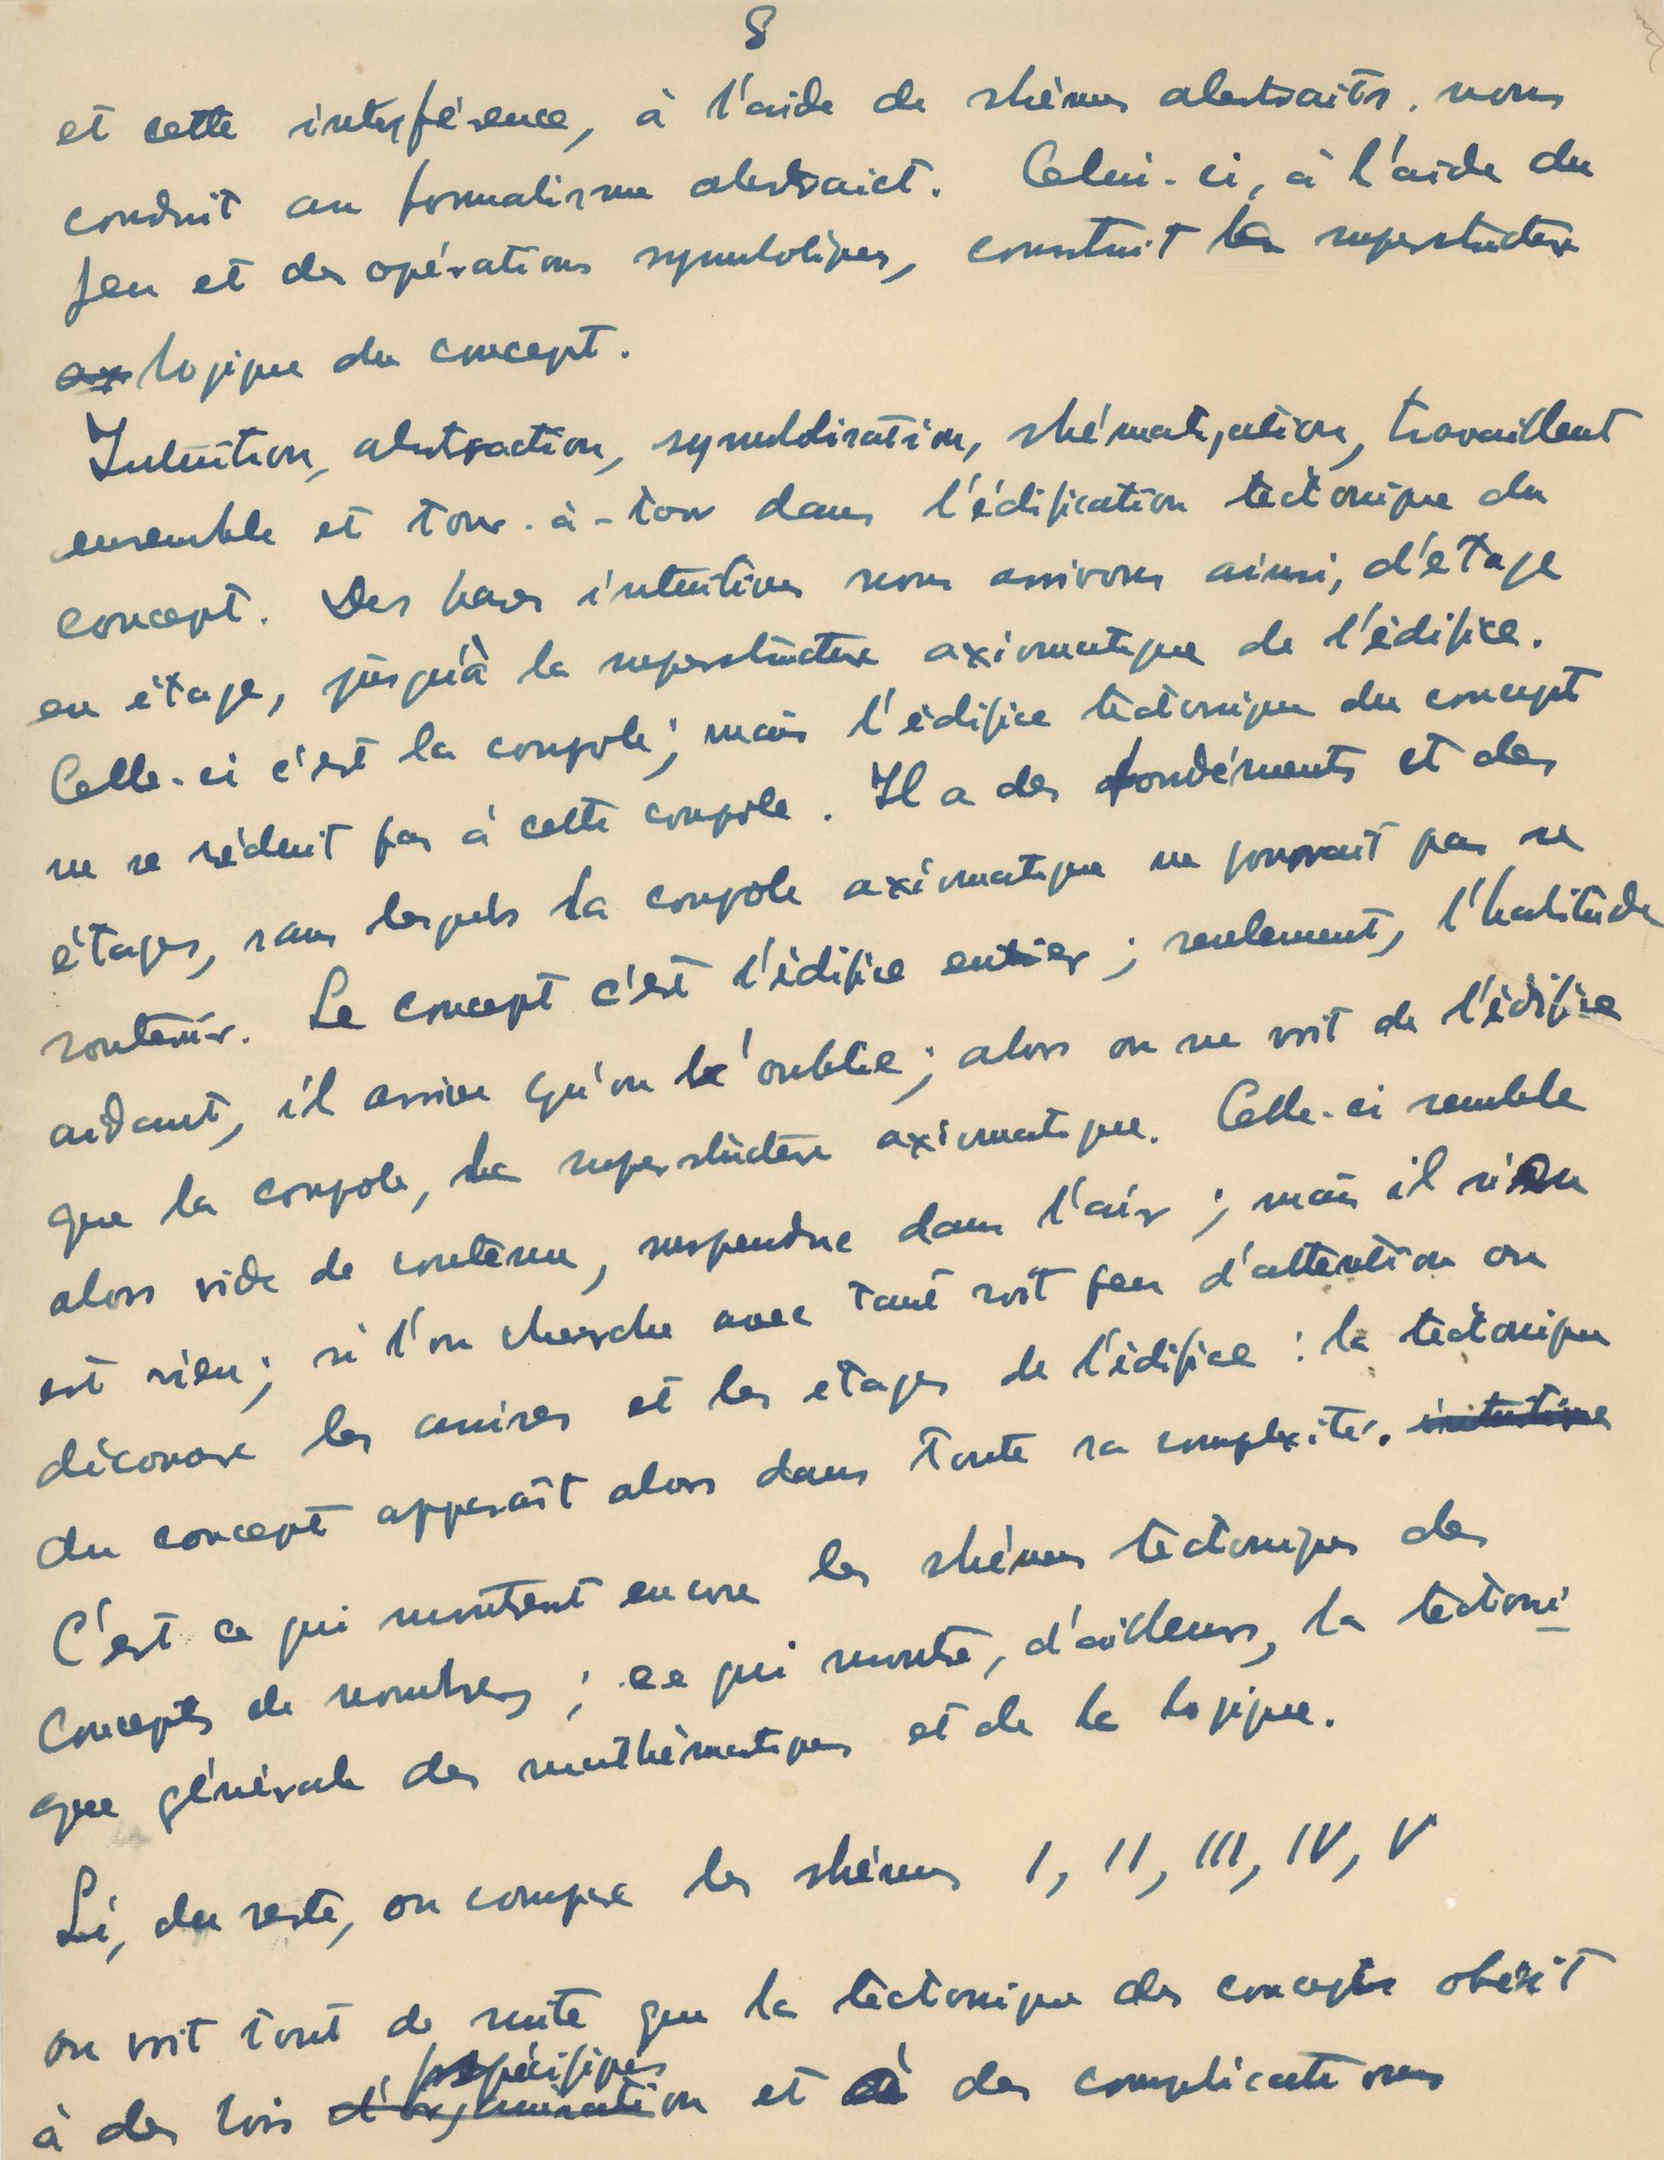 8
et cette interférence, à l'aide de shèmes abstraits. nous
conduit au formalisme abstraict. Celui-ci, à l'aide du
jeu et des opérations symboliques, construit la superstructure
logique du concept.
Intuition, abstraction, symbolisation, shématisation, travaillent
ensemble et tour-à-tour dans l'édification tectonique du
concept. Des bases intuitives nous arrivons ainsi, d'étage
en étage, jusqu'à la superstructure axiomatique de l'édifice.
Celle-ci c'est la coupole; mais l'édifice tectonique du concept
ne se réduit pas à cette coupole. Il a des fondéments et des
étages, sans lesquels la coupole axiomatique ne pourrait pas se
soutenir. Le concept c'est l'édifice entier; seulement, l'habitude
aidant, il arrive qu'on l'oublie; alors on ne voit de l'édifice
que la coupole, la superstructure axiomatique. Celle-ci semble
alors vide de contenu, suspendue dans l'air; mais il n'en
est rien; si l'on cherche avec tant soit peu d'attention on
découvre les assises et les etages de l'édifice: la tectonique
du concept apparaît alors dans toute sa complexité. intuitive
C'est ce qui montrent encore les shèmes tectoniques des
concepts de nombres; ce qui montre, d'ailleurs, la tectoni
que générale des mathématiques et de la logique.
Si, du reste, on compare les shèmes I, II, III, IV, V
on voit tout de suite que la tectonique des concepts obéit
spécifiques
à des lois d'organisation et à des complications